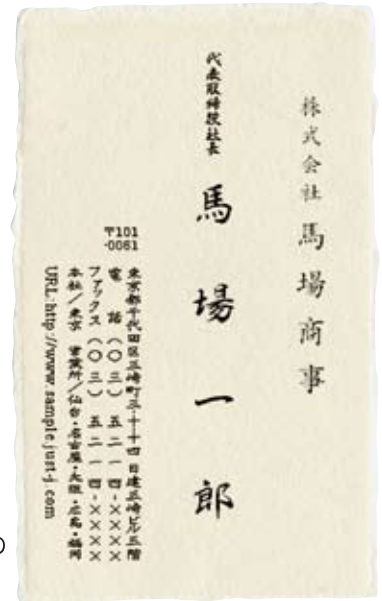 株式会社 馬場商事
代表取締役社長 馬場一郎
〒101
-0061
東京都千代田区三崎町三-十-十四 日建三崎ビル五階
電話(〇三)五二一四-××××
ファックス(〇三)五二一四-××××
本社/東京 営業所/仙台・名古屋・大阪・広島・福岡
URL: http://www.sample.just-j.com